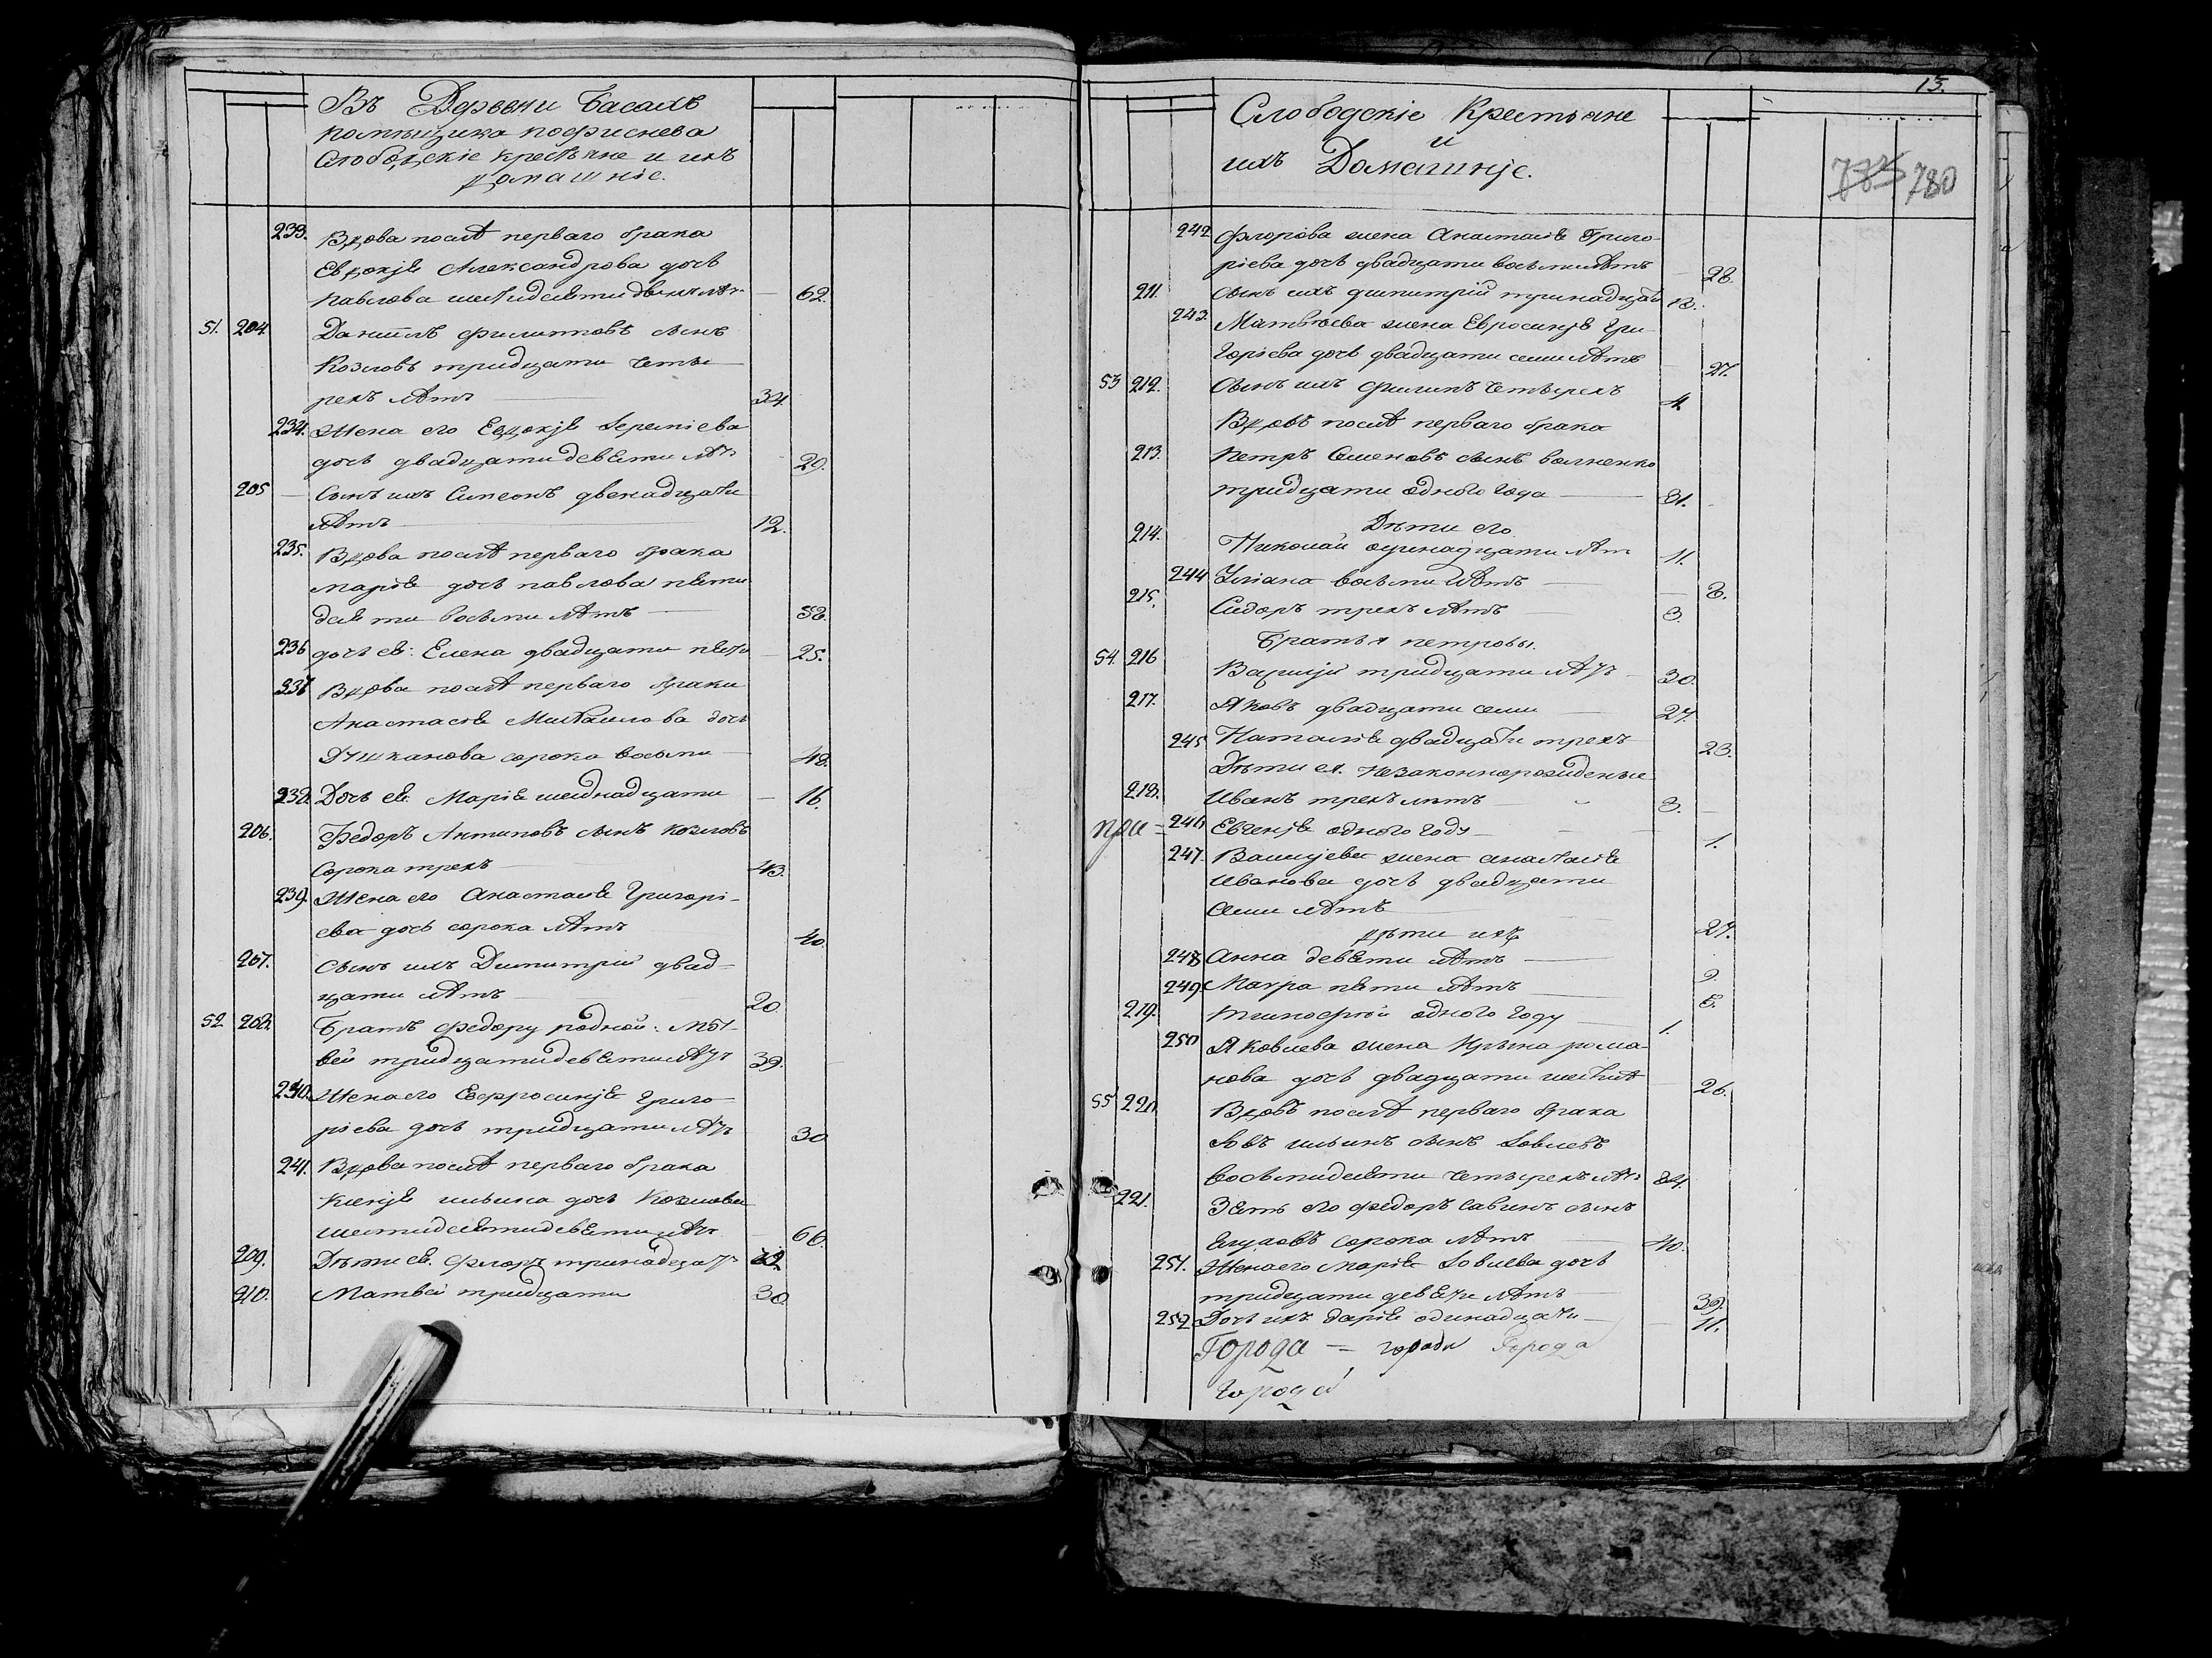 Въ Деревни Басахъ
помѣщика
Слободскіе крестьяне и ихъ
домашніе.
233. Вдова послѣ перваго брака
Евдокія Александрова дочь
Павлова шетидесяти двухъ лѣт 62.
51. 204. Даніилъ Филиповъ сынъ
Козловъ тридцати четы
рехъ лѣтъ 34
234. Жена его Евдокія Іереміева
дочь двадцати девяти лѣт 29.
205 Сынъ ихъ Симеонъ двенадцати
лѣтъ 12.
235. Вдова послѣ перваго брака
Марія дочь Павлова пяти
десяти восьми лѣтъ 58.
236 дочь ея: Елена двадцати пяти 25.
237 Вдова послѣ перваго браки
Анастасія Михаилова дочь
сорока восьми 48.
238. Дочь ея Марія шеснадцати 16.
206. Федоръ Антиповъ сынъ Козловъ
Сорока трехъ 43.
239. Жена его Анастасія Григорі-
ева дочь сорока лѣтъ 40.
207. Сынъ ихъ Димитрій двад-
цати лѣтъ 20
52 208. Братъ Федору родной: Мат-
вей тридцати девяти лѣтъ 39.
240. Жена его Евфросинія Григо-
ріева дочь тридцати лѣтъ 30
241. Вдова послѣ перваго брака
Ксенія Ильина дочь Козлова
шетидесяти девяти лѣтъ 66.
209. Дѣти ея. Флоръ тринадца
210. Матвей тридцати 30
13.
Слободскіе Крестьяне
и
ихъ Домашніе.
783 780
242 Флорова жена Анастасія Григо-
ріева дочь двадцати восьми лѣтъ 28.
211. Сынъ ихъ Димитрій тринадцати 13.
243. Матвѣева жена Евросинія Гри
горіева дочь двадцати семи лѣтъ 27.
53 212. Сынъ ихъ Филипъ четырехъ 4
Вдовъ послѣ перваго брака
213. Петръ Семеновъ сынъ
тридцати одного года 31.
Дѣти его
214. Николай одинадцати лѣт 11.
244 Уліана восьми лѣтъ 8.
215. Сидоръ трехъ лѣтъ 3.
Братья Петровы.
54. 216 Василій тридцати лѣтъ 30.
217. Яковъ двадцати семи 27.
245 Наталія двадцати трехъ 23.
Дѣти ея. незаконнорожденые
218. Иванъ трехъ лѣтъ 3.
246 Евгенія одного году 1.
247. Василіева жена Анастасія
Иванова дочь двадцати
семи лѣтъ 27.
дѣти ихъ
248 Анна девяти лѣтъ 9.
249 Мавра пяти лѣтъ 5.
219. Тимофей одного году 1.
250 Яковлева жена Ирына рома-
нова дочь двадцати шести 26.
55 220 Вдовъ послѣ перваго брака
Іовъ Ильинъ сынъ Іовлевъ
восьмидесяти четырехъ лѣтъ 84.
221. Зять его Федоръ Савинъ сынъ
сорока лѣтъ 40.
251. Жена его Марія Іовлева дочь
тридцати девяти лѣтъ 39.
252 Дочь ихъ Дарія одинадцати 11.
Города — города Города
Города